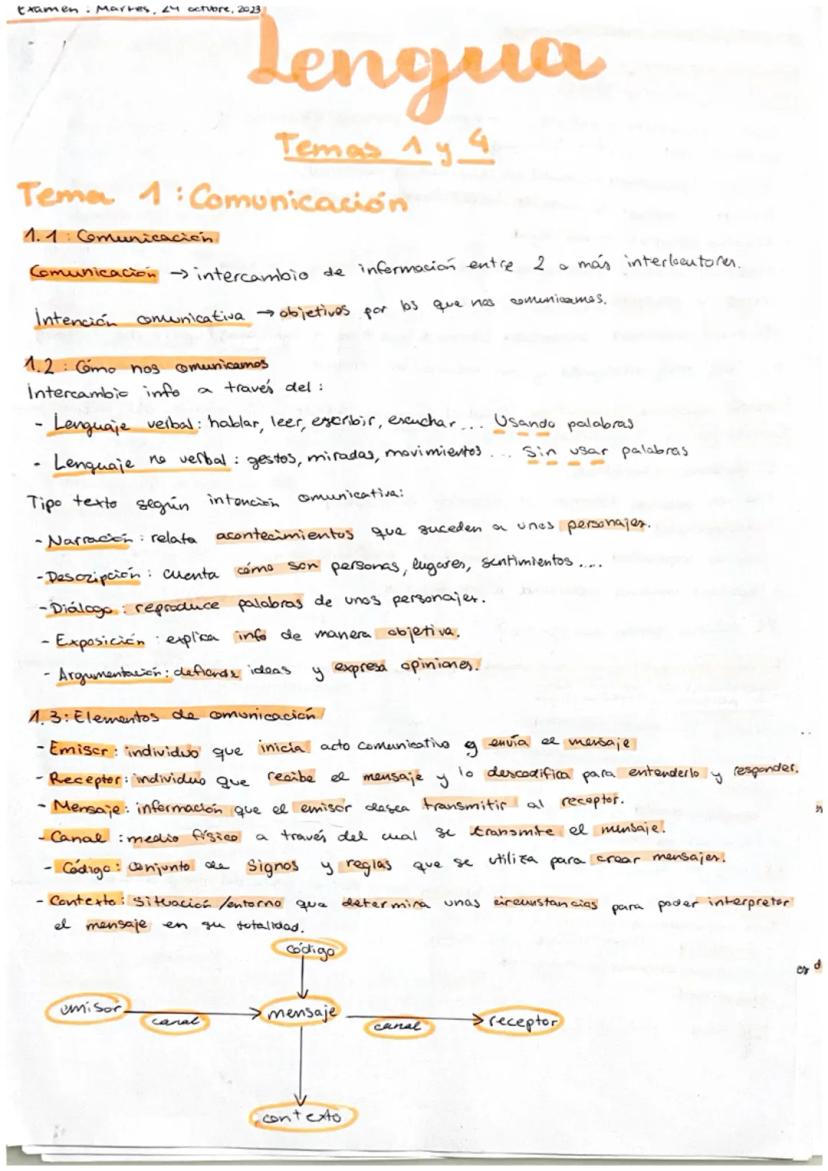 Examen : Martes, 24 octubre, 2023
Lengua
Temas 1 y 4
Tema 1 : Comunicación
1.1 : Comunicación
Comunicación → intercambio de información entre 2 o más interlocutores.
Intención comunicativa → objetivos por los que nos comunicamos.
1.2 : Cómo nos comunicamos
Intercambio info a través del :
- Lenguaje verbal : hablar, leer, escribir, escuchar ... Usando palabras
- Lenguaje no verbal : gestos, miradas, movimientos ... Sin usar palabras
Tipo texto según intención comunicativa:
- Narración : relata acontecimientos que suceden a unos personajes.
- Descripción : cuenta cómo son personas, lugares, sentimientos ....
- Diálogo : reproduce palabras de unos personajes.
- Exposición : explica info de manera objetiva.
- Argumentación : defiende ideas y expresa opiniones.
1.3 : Elementos de comunicación
- Emisor : individuo que inicia acto comunicativo y envía el mensaje
- Receptor : individuo que recibe el mensaje y lo descodifica para entenderlo y responder.
- Mensaje : información que el emisor desea transmitir al receptor.
- Canal : medio físico a través del cual se transmite el mensaje.
- Código : conjunto de signos y reglas que se utiliza para crear mensajes.
- Contexto : situación/entorno que determina unas circunstancias para poder interpretar
el mensaje en su totalidad.
código
emisor canal mensaje canal receptor
contexto